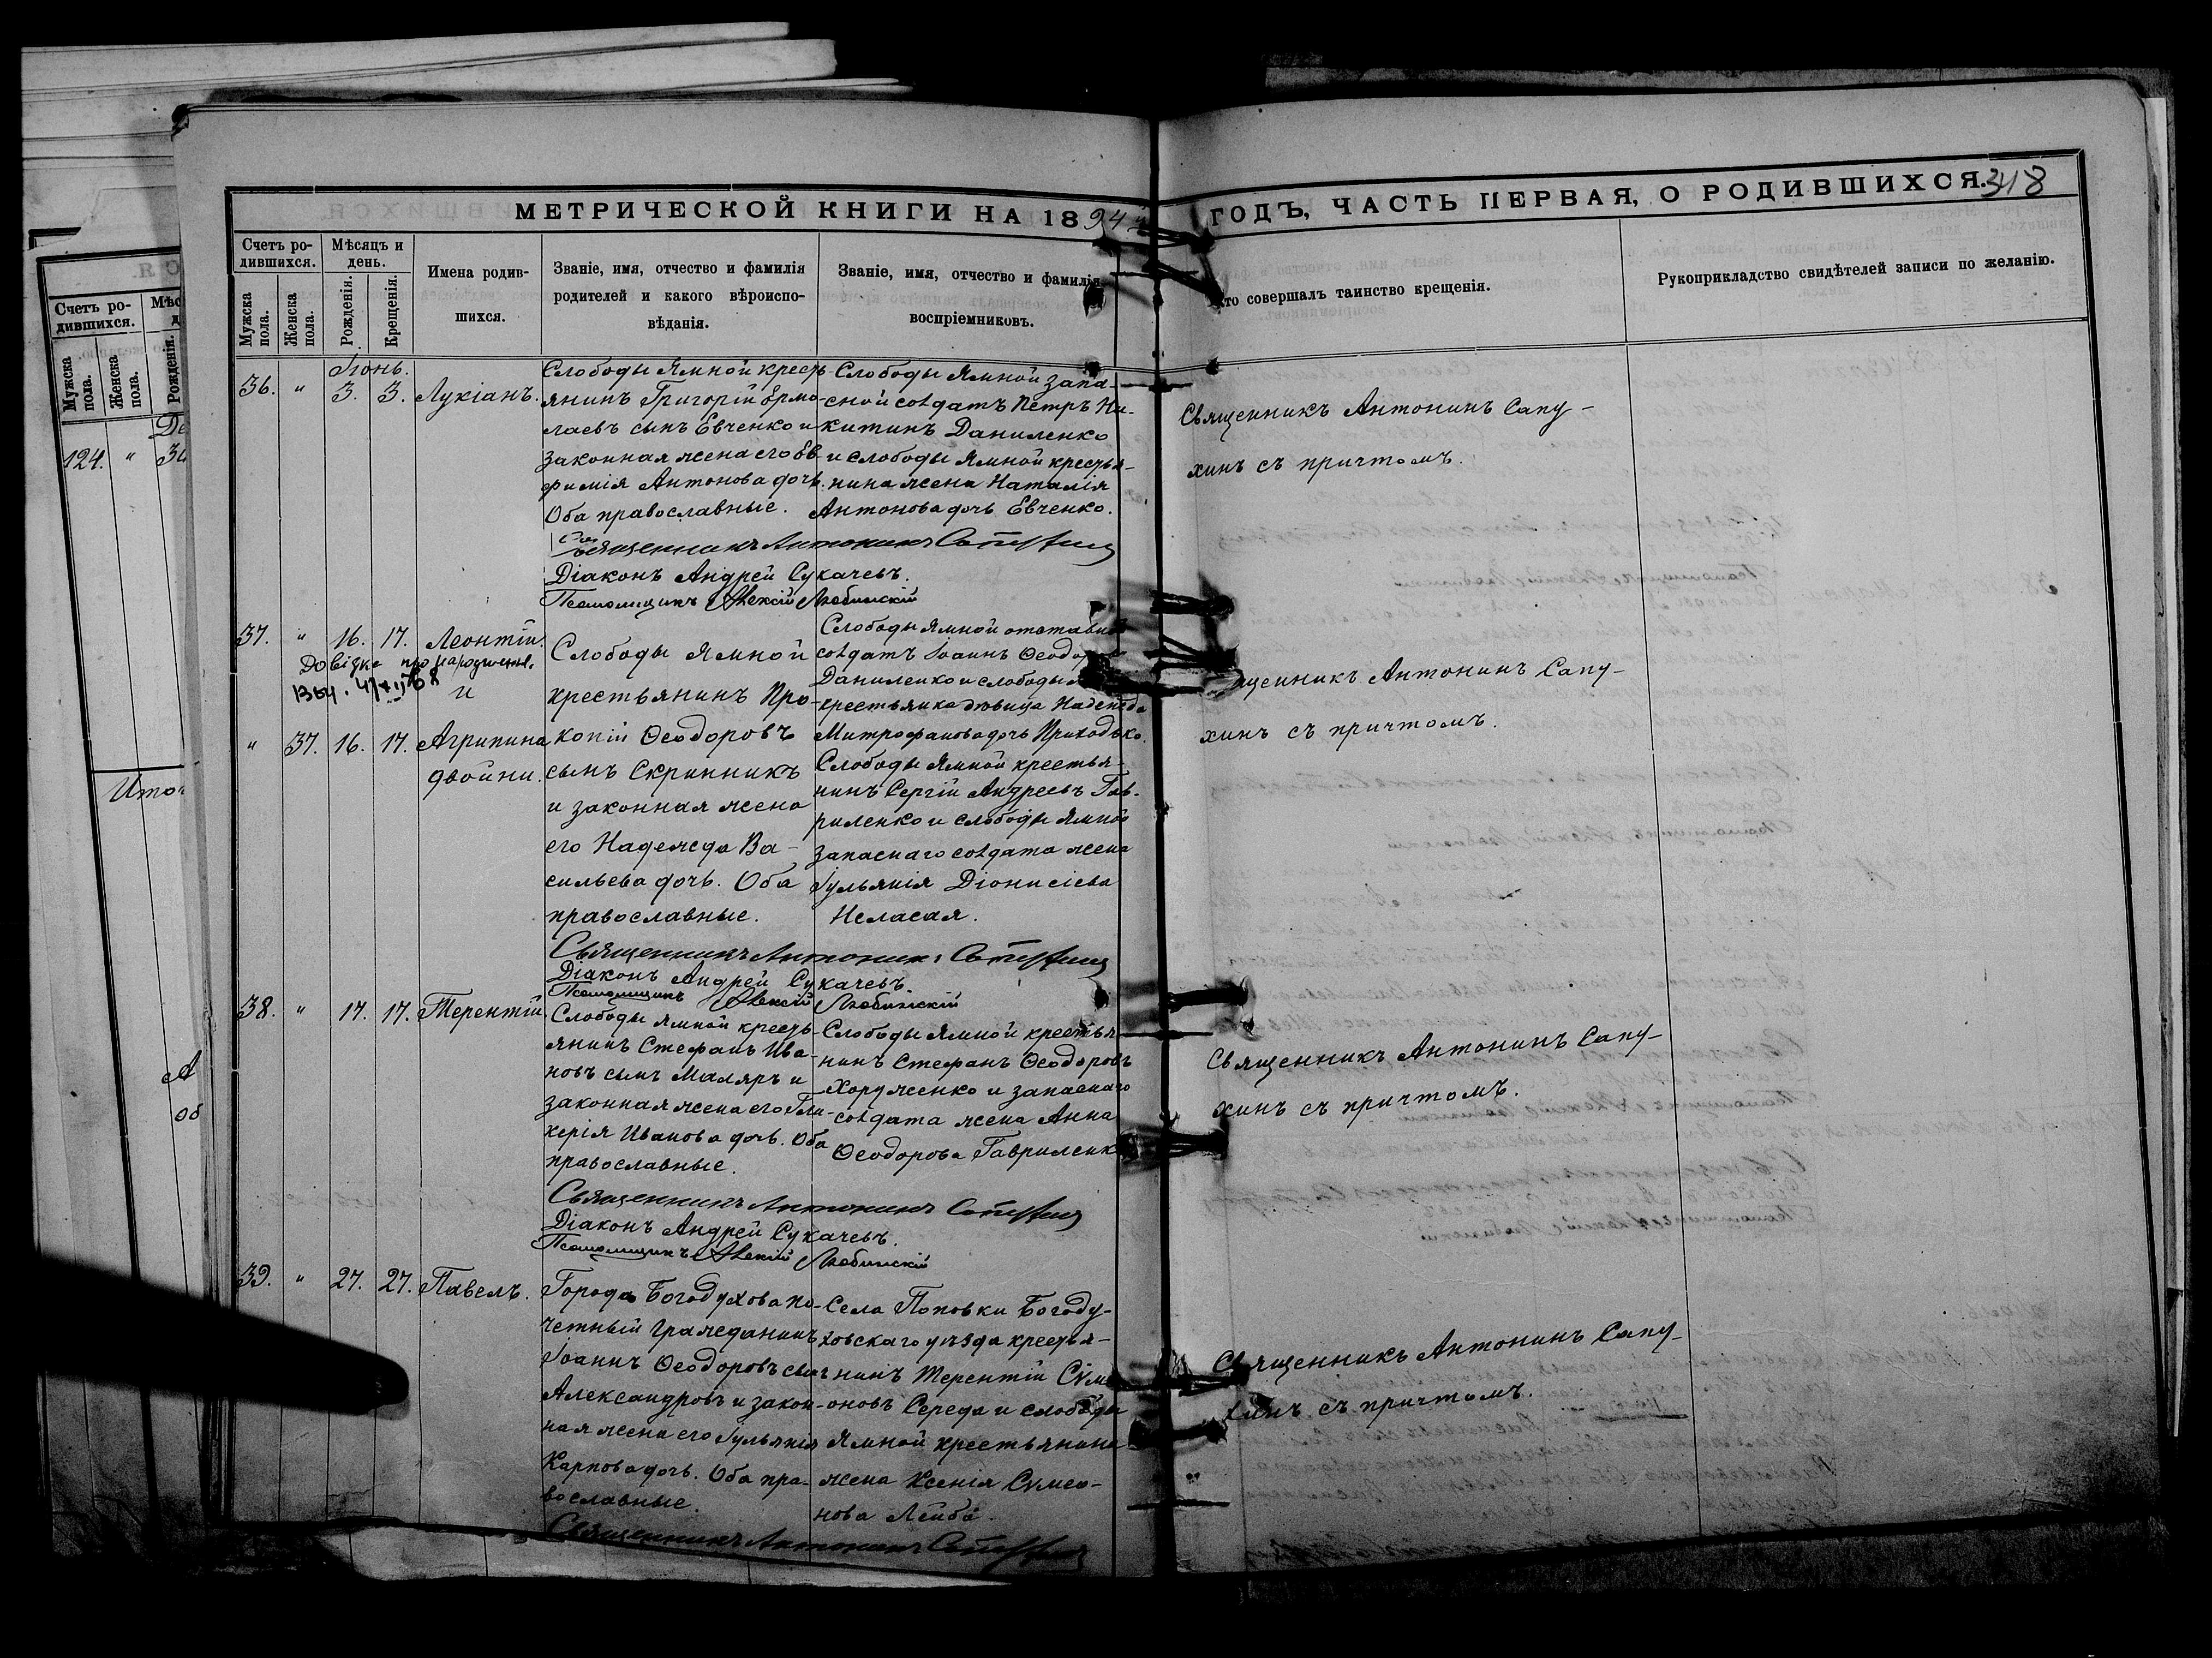 МЕТРИЧЕСКОЙ КНИГИ НА 1894й
ГОДЪ, ЧАСТЬ ПЕРВАЯ, О РОДИВШИХСЯ.
318
Счетъ ро-
дившихся.
Мужска
пола.
Женска
пола.
Мѣсяцъ и
день.
Рожденія.
Крещенія.
Имена родив-
шихся.
Званіе, имя, отчество и фамилія
родителей и какого вѣроиспо-
вѣданія.
Званіе, имя, отчество и фамилія
воспріемниковъ.
Кто совершалъ таинство крещенія.
Рукоприкладство свидѣтелей записи по желанію.
Счетъ ро-
дившихся.
Мужска
пола.
Женска
пола.
Рожденія.
124. "
Іюнь.
36. " 3. 3. Лукіанъ.
Слободы Ямной кресть-
янинъ Григорій Ермо-
лаевъ сынъ Евченко и
законная жена его Ев-
фимія Антонова дочь.
Оба православные.
Слободы Ямной запа-
сной солдатъ Петръ Ни-
китинъ Даниленко
и слободы Ямной крестья-
нина жена Наталія
Антонова дочь Евченко.
Священникъ Антонинъ Сапу-
хинъ съ причтомъ.
Священникъ Антонинъ Сапухинъ
Діаконъ Андрей Сукачевъ.
Псаломщикъ Алексій Любинскій
37. " 16. 17. Леонтій
Довідка про народження.
и
" 37. 16. 17. Агрипина
двойни.
Слободы Ямной
крестьянинъ Про-
копій Ѳеодоровъ
сынъ Скринникъ
и законная жена
его Надежда Ва-
сильева дочь. Оба
православные.
Слободы Ямной отставной
солдатъ Іоаннъ Ѳеодоровъ
Даниленко и слободы
крестьянка дѣвица Надежда
Митрофанова дочь Приходько.
Слободы Ямной крестья-
нинъ Сергій Андреевъ Гав-
риленко и слободы Ямной
запаснаго солдата жена
Іульянія Діонисіева
Неласая.
Священникъ Антонинъ Сапу-
хинъ съ причтомъ.
Священникъ Антонинъ Сапухинъ
Діаконъ Андрей Сукачевъ.
Псаломщикъ Алексій Любинскій
38. " 17. 17. Терентій.
Слободы Ямной кресть-
янинъ Стефанъ Ива-
новъ сынъ Маляръ и
законная жена его Гли-
керія Иванова дочь. Оба
православные.
Слободы Ямной крестья-
нинъ Стефанъ Ѳеодоровъ
Хоруженко и запаснаго
солдата жена Анна
Ѳеодорова Гавриленк
Священникъ Антонинъ Сапу-
хинъ съ причтомъ.
Священникъ Антонинъ Сапухинъ
Діаконъ Андрей Сукачевъ.
Псаломщикъ Алексій Любинскій
39. " 27. 27. Павелъ.
Города Богодухова по-
четный гражданинъ
Іоаннъ Ѳеодоровъ сынъ
Александровъ и закон-
ная жена его Іульянія
Карпова дочь. Оба пра-
вославные.
Села Поповки Богоду-
ховскаго уѣзда крестья-
нинъ Терентій Сѵме-
оновъ Середа и слободы
Ямной крестьянина
жена Ксенія Сѵмео-
нова Лейба.
Священникъ Антонинъ Сапу-
хинъ съ причтомъ.
Священникъ Антонинъ Сапухинъ